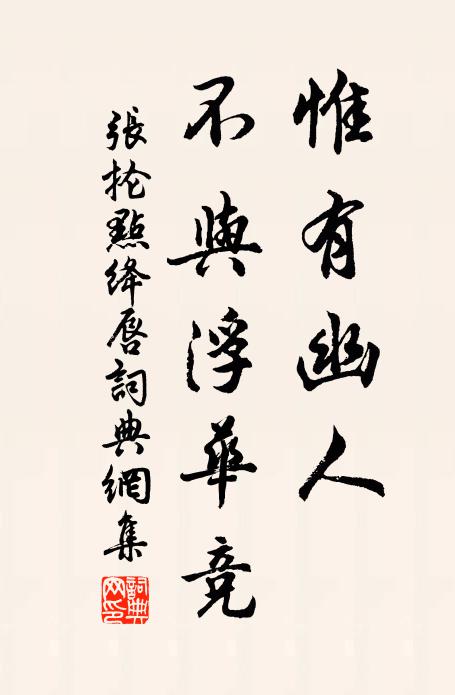 惟有幽人
不與浮華竞
張抡點绛唇詞典網集
詞典网印